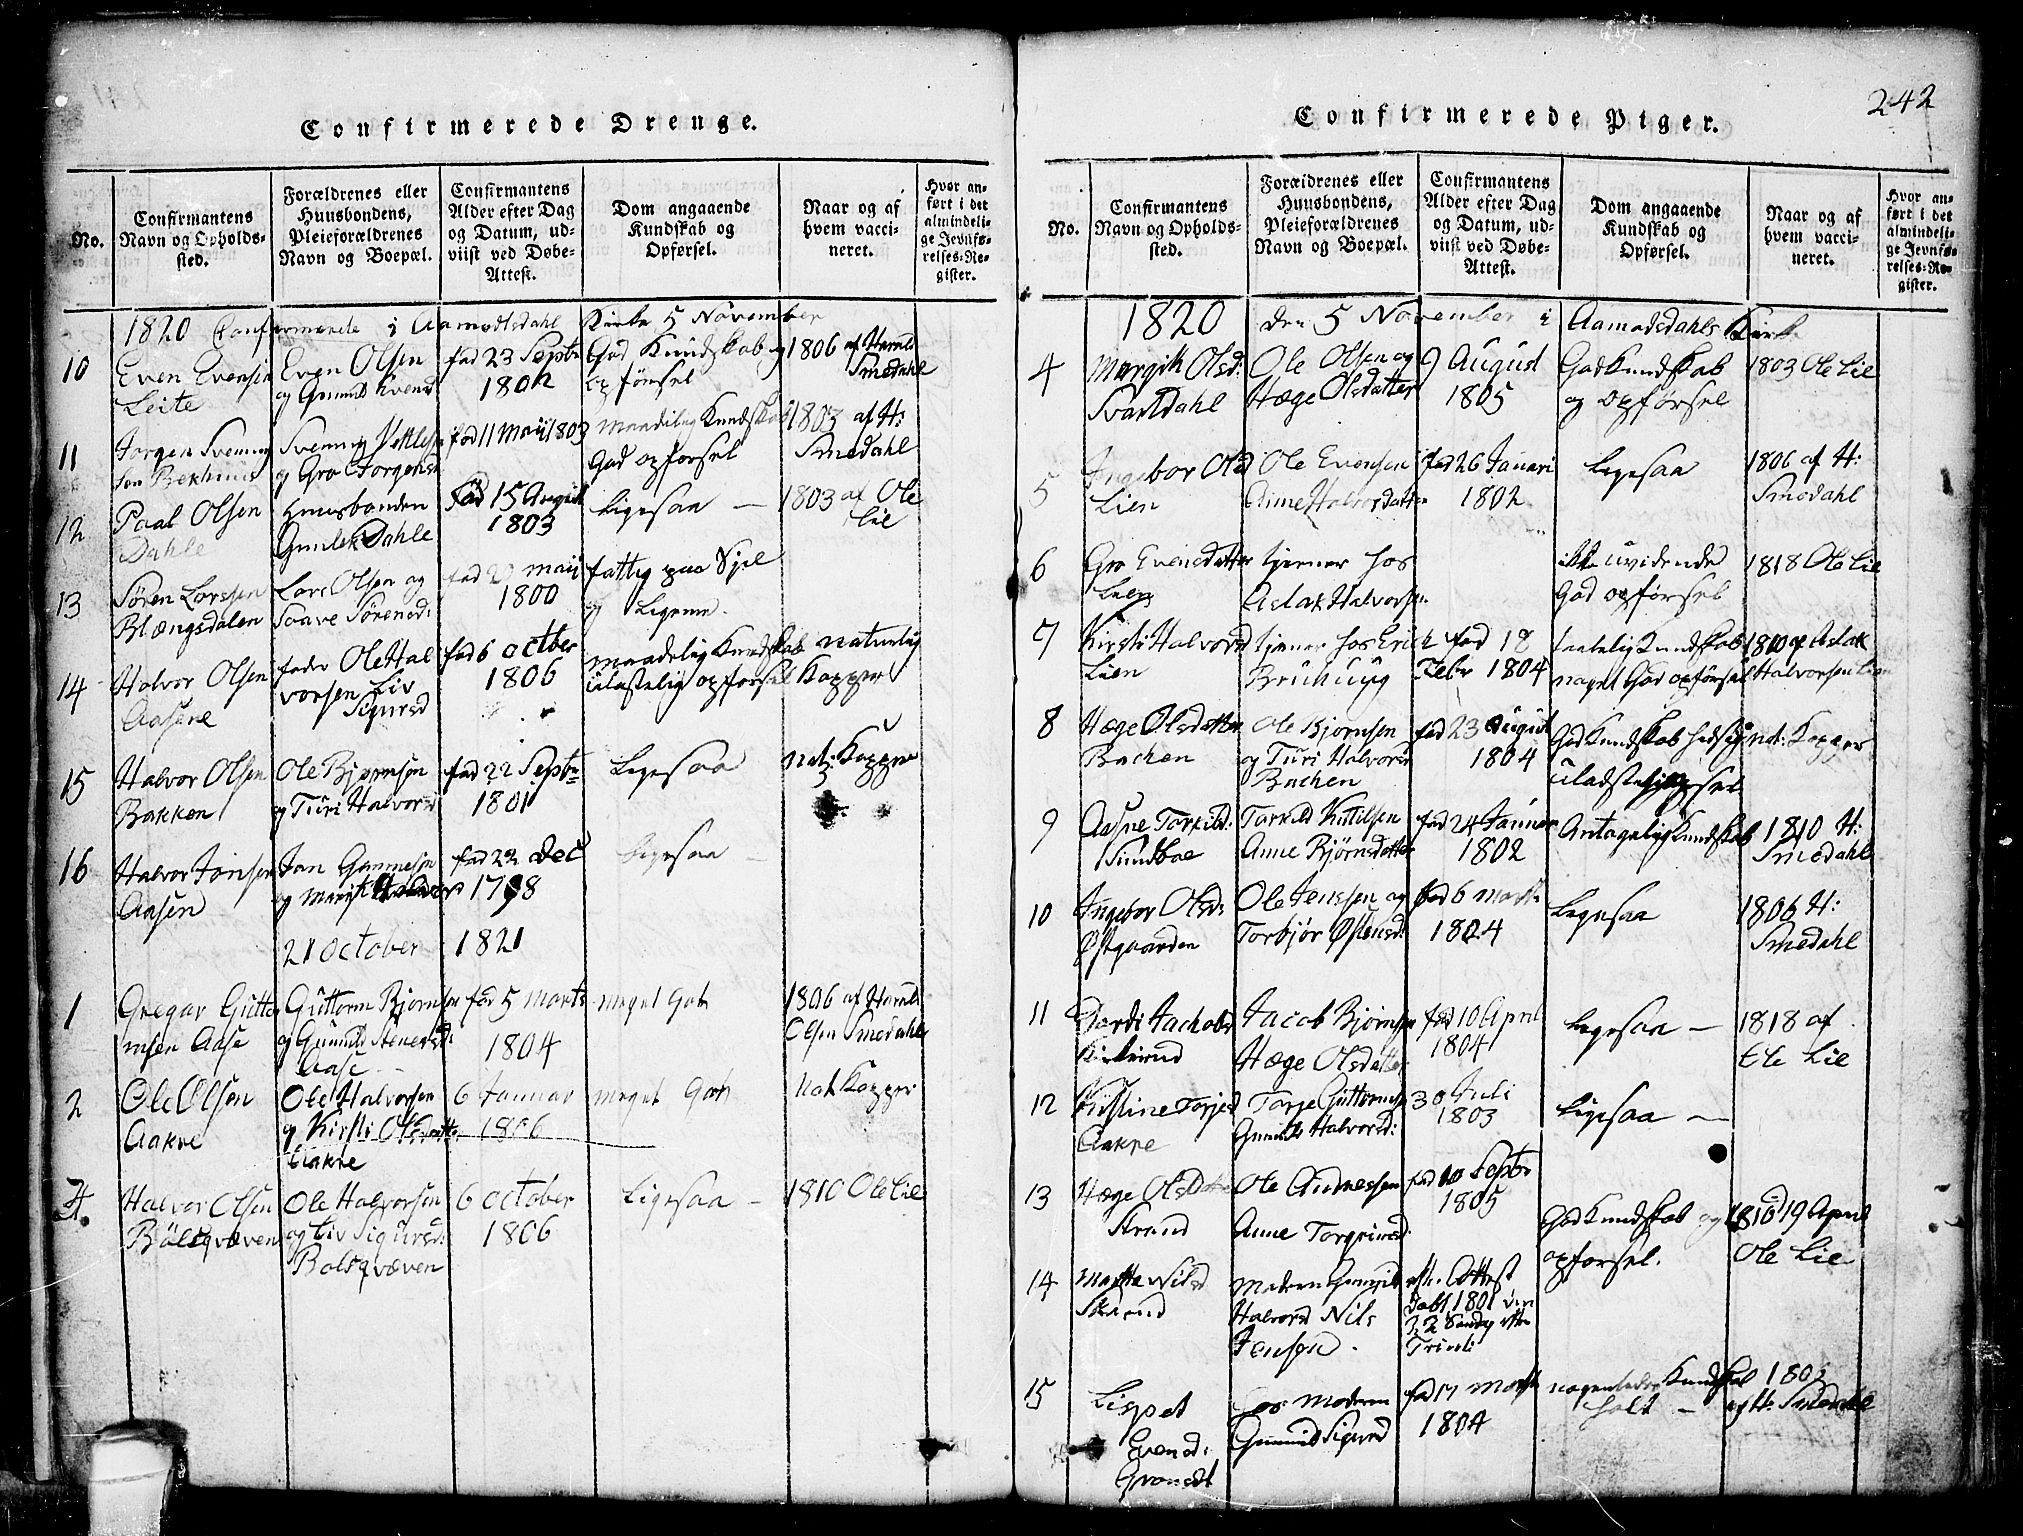 242
Confirmerede Drenge.
No.
Confirmantens
Navn og Opholds-
sted.
Forældrenes eller
Huusbondens,
Pleieforældrenes
Navn og Boepæl.
Confirmantens
Alder efter Dag
og Datum, ud-
viist ved Døbe-
Attest.
Dom angaaende
Kundskab og
Opførsel.
Naar og af
hvem vacci-
neret.
Hvor an-
ført i det
almindeli-
ge Jevnfø-
relses-Re-
gister.
1820 Confirmerede i Aamodtsdahl Kirke 5 November
10
Even Evensen
Leite
Even Olsen
og Gunnild Evensd
fød 23 Septr
1802
God Kundskab og
opførsel
1806 af Harald
Smedahl
11
Jorgen Svenung
sen
Svenung
og Gro Jorgensd
fød 11 Maii 1803
maadelig Kundskab
God opførsel
1803 af H:
Smedahl
12
Paal Olsen
Dahle
Huusbonden
Gunlek Dahle
fød 15 August
1803
Ligesaa —
1803 af Ole
Lie
13
Sören Larssen
Blængsdalen
Lars Olsen og
Saave Sörensd:
fød 29 maij
1800
fattig paa Sjel
og Legeme.
14
Halvor Olsen
Aasene
fader Ole Hal
vorsen Liv
Sigursd
fød 6 octber
1806
maadelig Kundskab
ulastelig opførsel
naturlig
Kopper
15
Halvor Olsen
Bakken
Ole Bjørnsen
og Turi Halvorsd
fød 22 Septr
1801
Ligesaa
nat: Kopper
16
Halvor Jonsen
Aasen
Jon Gunnesen
og Margit
fød 22 Dec
1798
Ligesaa —
21 October 1821
1
Gregar Gutto
rmsen Aase
Guttorm Bjornsen
og Gunnild Stenersd:
Aase
fød 5 Marts
1804
meget Godt
1806 af Harald
Olsen Smedahl
2
Ole Olsen
Aakre
Ole Halvorsen
og Kirsti Olsdatter
Aakre
6 Januar
1806
meget Godt
nat Kopper
Halvor Olsen
Bölsqvæven
Ole Halvorsen
og Liv Sigursd:
Bolsqvæven
6 October
1806
Ligesaa —
1810 Ole Lie
Confirmerede Piger.
No.
Confirmantens
Navn og Opholds-
sted.
Forældrenes eller
Huusbondens,
Pleieforældrenes
Navn og Boepæl.
Confirmantens
Alder efter Dag
og Datum, ud-
viist ved Døbe-
Attest.
Dom angaaende
Kundskab og
Opførsel.
Naar og af
hvem vacci-
neret.
Hvor an-
ført i det
almindeli-
ge Jevnfø-
relses-Re-
gister.
1820 den 5 November i Aamodsdahls Kirke
4
Margith Olsd:
Svartdahl
Ole Olsen og
Hæge Olsdatter
9 August
1805
God Kundskab
og opførsel
1803 Ole Lie
5
Ingebor Olsd
Lien
Ole Evensen
Anne Halvorsdatter
fød 26 Januari
1802
Ligesaa
1806 af H:
Smedahl
6
Gro Evensdatter
Lien
tjener hos
Aslak Halvorsen
ikke uvidende
God opførsel
1818 Ole Lie
7
Kirsti Halvorsd
Lien
tjener hos Erich
fød 18
Febr 1804
taalelig Kundskab
noget God opførsel
1810 af Aslak
Halvorsen Lien
8
Hæge Olsdatter
Bachen
Ole Bjornsen
og Turi Halvorsd
Bachen
fød 23 August
1804
God Kundskab
nat: Kopper
9
Aasne Torkild:
Sundboe
Torkild Kittilsen
Anne Bjørnsdatter
fød 24 Januar
1802
Antagelig Kundskab
1810 H:
Smedahl
10
Ingebor Olsd:
Østgaarden
Ole Jenssen og
Torbjør Østensd:
fød 6 marts
1804
Ligesaa
1806 H:
Smedahl
11
Dordi Jachobs
Jacob Bjornsen
Hæge Olsdatter
fød 10 April
1804
Ligesaa —
1818 af
Ole Lie
12
Kirstine Torjesd
Aakre
Torje Guttormsen
Gunnild Halvorsd:
30 Juli
1803
Ligesaa —
13
Hæge Olsdatter
Strand
Ole Andnessen
Anne Torgrimsd
fød 10 Septr
1805
God Kundskab og
opførsel.
1810 19 April
Ole Lie
14
Nilsd
Strand
Moderen
Halvorsd Nils
Jensen.
eft. Attest
Døbt 1801 den
22 Søndag efter
Trinit:
15
Lispet
Evensd:
Grovedt
hos moderen
Gunnild Sigursd
fød 17 Marts
1804
nogenledes Kundskab
holt —
af H: Smedahl